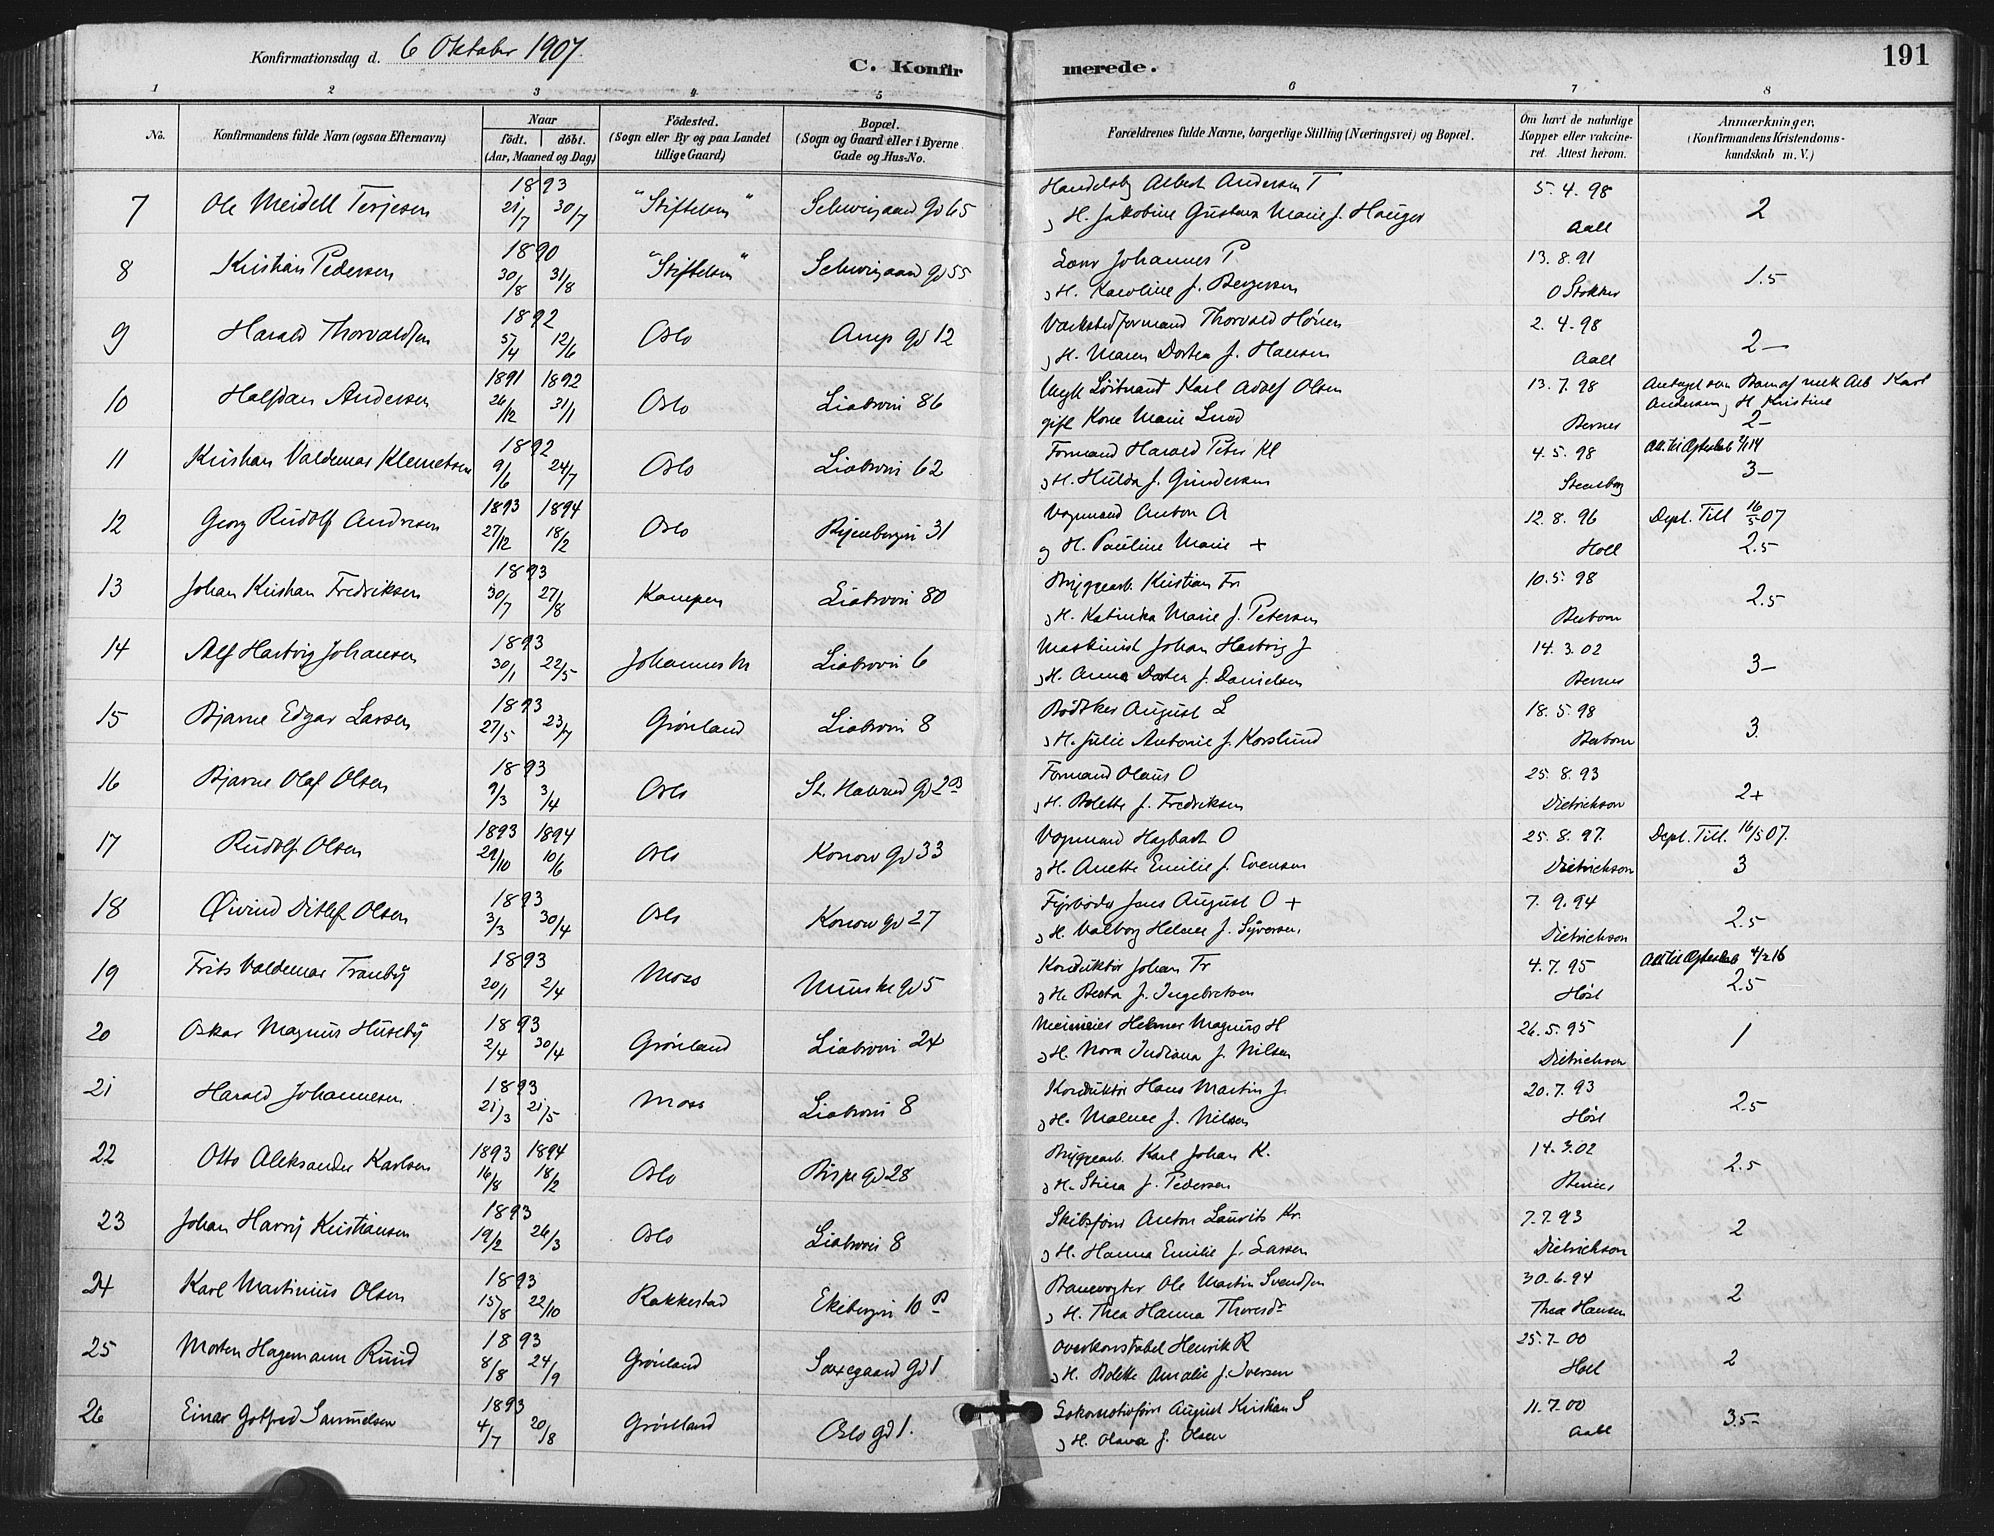 Konfirmationsdag d. 6 Oktober 1907.
C. Konfirmerede.
191
1 2 3 4 5 6 7 8
No.
Konfirmandens fulde Navn (ogsaa Efternavn)
Naar
födt. döbt.
(Aar, Maaned og Dag)
Födested.
(Sogn eller By og paa Landet
tillige Gaard)
Bopæl.
(Sogn og Gaard eller i Byerne
Gade og Hus-No.
Forældrenes fulde Navne, borgerlige Stilling (Næringsvei) og Bopæl.
Om havt de naturlige
Kopper eller vakcine-
ret. Attest herom.
Anmærkninger,
(Konfirmandens Kristendoms-
kundskab m. V.)
7 Ole Meidell Terjesen 1893 21/7 30/7 "Stiftelsen" Schweigaard gd 65 Albert Andersen T 5.4.98
og H. Jakobine Gustava Marie f. Hauger Aall 2
8 Kristian Pedersen 1890 30/8 31/8 "Stiftelsen" Schweigaard gd 55 Johannes P 13.8.91
og H. Karoline f. Bergersen O Stokker 1.5
9 Harald Thorvaldsen 1892 5/4 12/6 Oslo Arups gd 12 Værkstedformand Thorvald 2.4.98
og H. Maren Dortea f. Hansen Aall 2—
10 Halfdan Andersen 1891 26/12 1892 31/1 Oslo Liabrovei 86 Ungk Karl Adolf Olsen 13.7.98 Antaget som Barn af Karl
gift Kone Marie Lund Berner Andersen og H. Kristine
2—
11 Kristian Valdemar Klemetsen 1892 9/6 24/7 Oslo Liabrovei 62 Formand Harald Peter Kl 4.5.98
og H. Hulda f. Gundersen Steensberg 3—
12 Georg Rudolf Andresen 1893 27/12 1894 18/2 Oslo Ryenbergvei 31 Vognmand Anton A 12.8.96 Dept. Till 16/5 07
og H. Pauline Marie + Holl 2.5
13 Johan Kristian Fredriksen 1893 30/7 27/8 Kampen Liabrovei 80 Bryggearb. Kristian Fr 10.5.98
og H. Katinka Marie f. Petersen 2.5
14 Alf Hartvig Johansen 1893 30/1 22/5 Johannes Liabrovei 6 Maskinist Johan Hartvig J 14.3.02
og H. Anna Dortea f. Danielsen Berner 3—
15 Bjarne Edgar Larsen 1893 27/5 23/7 Grönland Liabrovei 8 Bödtker August L 18.5.98
og H. Julie Antonie f. Korslund 3.
16 Bjarne Olaf Olsen 1893 9/3 3/4 Oslo St. Halvard gd 2 Formand Olaus O 25.8.93
og H. Bolette f. Fredriksen Dietrichson 2+
17 Rudolf Olsen 1893 29/10 1894 10/6 Oslo Konow gd 33 Vognmand Hagbart O 25.8.97. Dept. Till. 16/5 07.
og H. Anette Emilie f. Evensen Dietrichson 3
18 Øivind Ditlef Olsen 1893 3/3 30/4 Oslo Konow gd 27 Fyrböder Jens August O + 7.9.94
og H. Valborg Helene f. Syversen Dietrichson 2.5
19 Frits Valdemar Tranby 1893 20/1 2/4 Moss Munke gd 5 Konduktör Johan Tr 4.7.95
og H. Berta f. Ingebretsen Høst 2.5
20 Oskar Magnus Huseby 1893 2/4 30/4 Grönland Liabrovei 24 Helmer Magnus H 26.5.95
og H. Nora Indiana f. Nilsen Dietrichson 1
21 Harald Johannesen 1893 21/3 21/5 Moss Liabrovei 8 Konduktör Hans Martin J. 20.7.93
og H. Malene f. Nilsen Høst 2.5
22 Otto Aleksander Karlsen 1893 16/8 1894 18/2 Oslo Bispe gd 28 Bryggearb. Karl Johan K. 14.3.02
og H. Stina f. Pedersen Berner 2.5
23 Johan Harry Kristiansen 1893 19/2 26/3 Oslo Liabrovei 8 Skibsförer Anton Laurits Kr. 7.7.93
og H. Hanna Emilie f. Larsen Dietrichson 2
24 Karl Martinius Olsen 1893 15/8 22/10 Rakkestad Ekebergvei 10 B Banevogter Ole Martin Svendsen 30.6.94
og H. Thea Hanna Thoresdr Thea Hansen 2
25 Morten Hagemann Ruud 1893 8/8 24/9 Grönland Saxegaard gd 1 Overkonstabel Henrik R 25.7.00
og H. Bolette Amalie f. Iversen Holl 2
26 Einar Gotfred Samuelsen 1893 4/7 20/8 Grönland Oslo gd 1. Lokomotivförer August Kristian S 11.7.00
og H. Olava f. Olsen Aall 3.5-